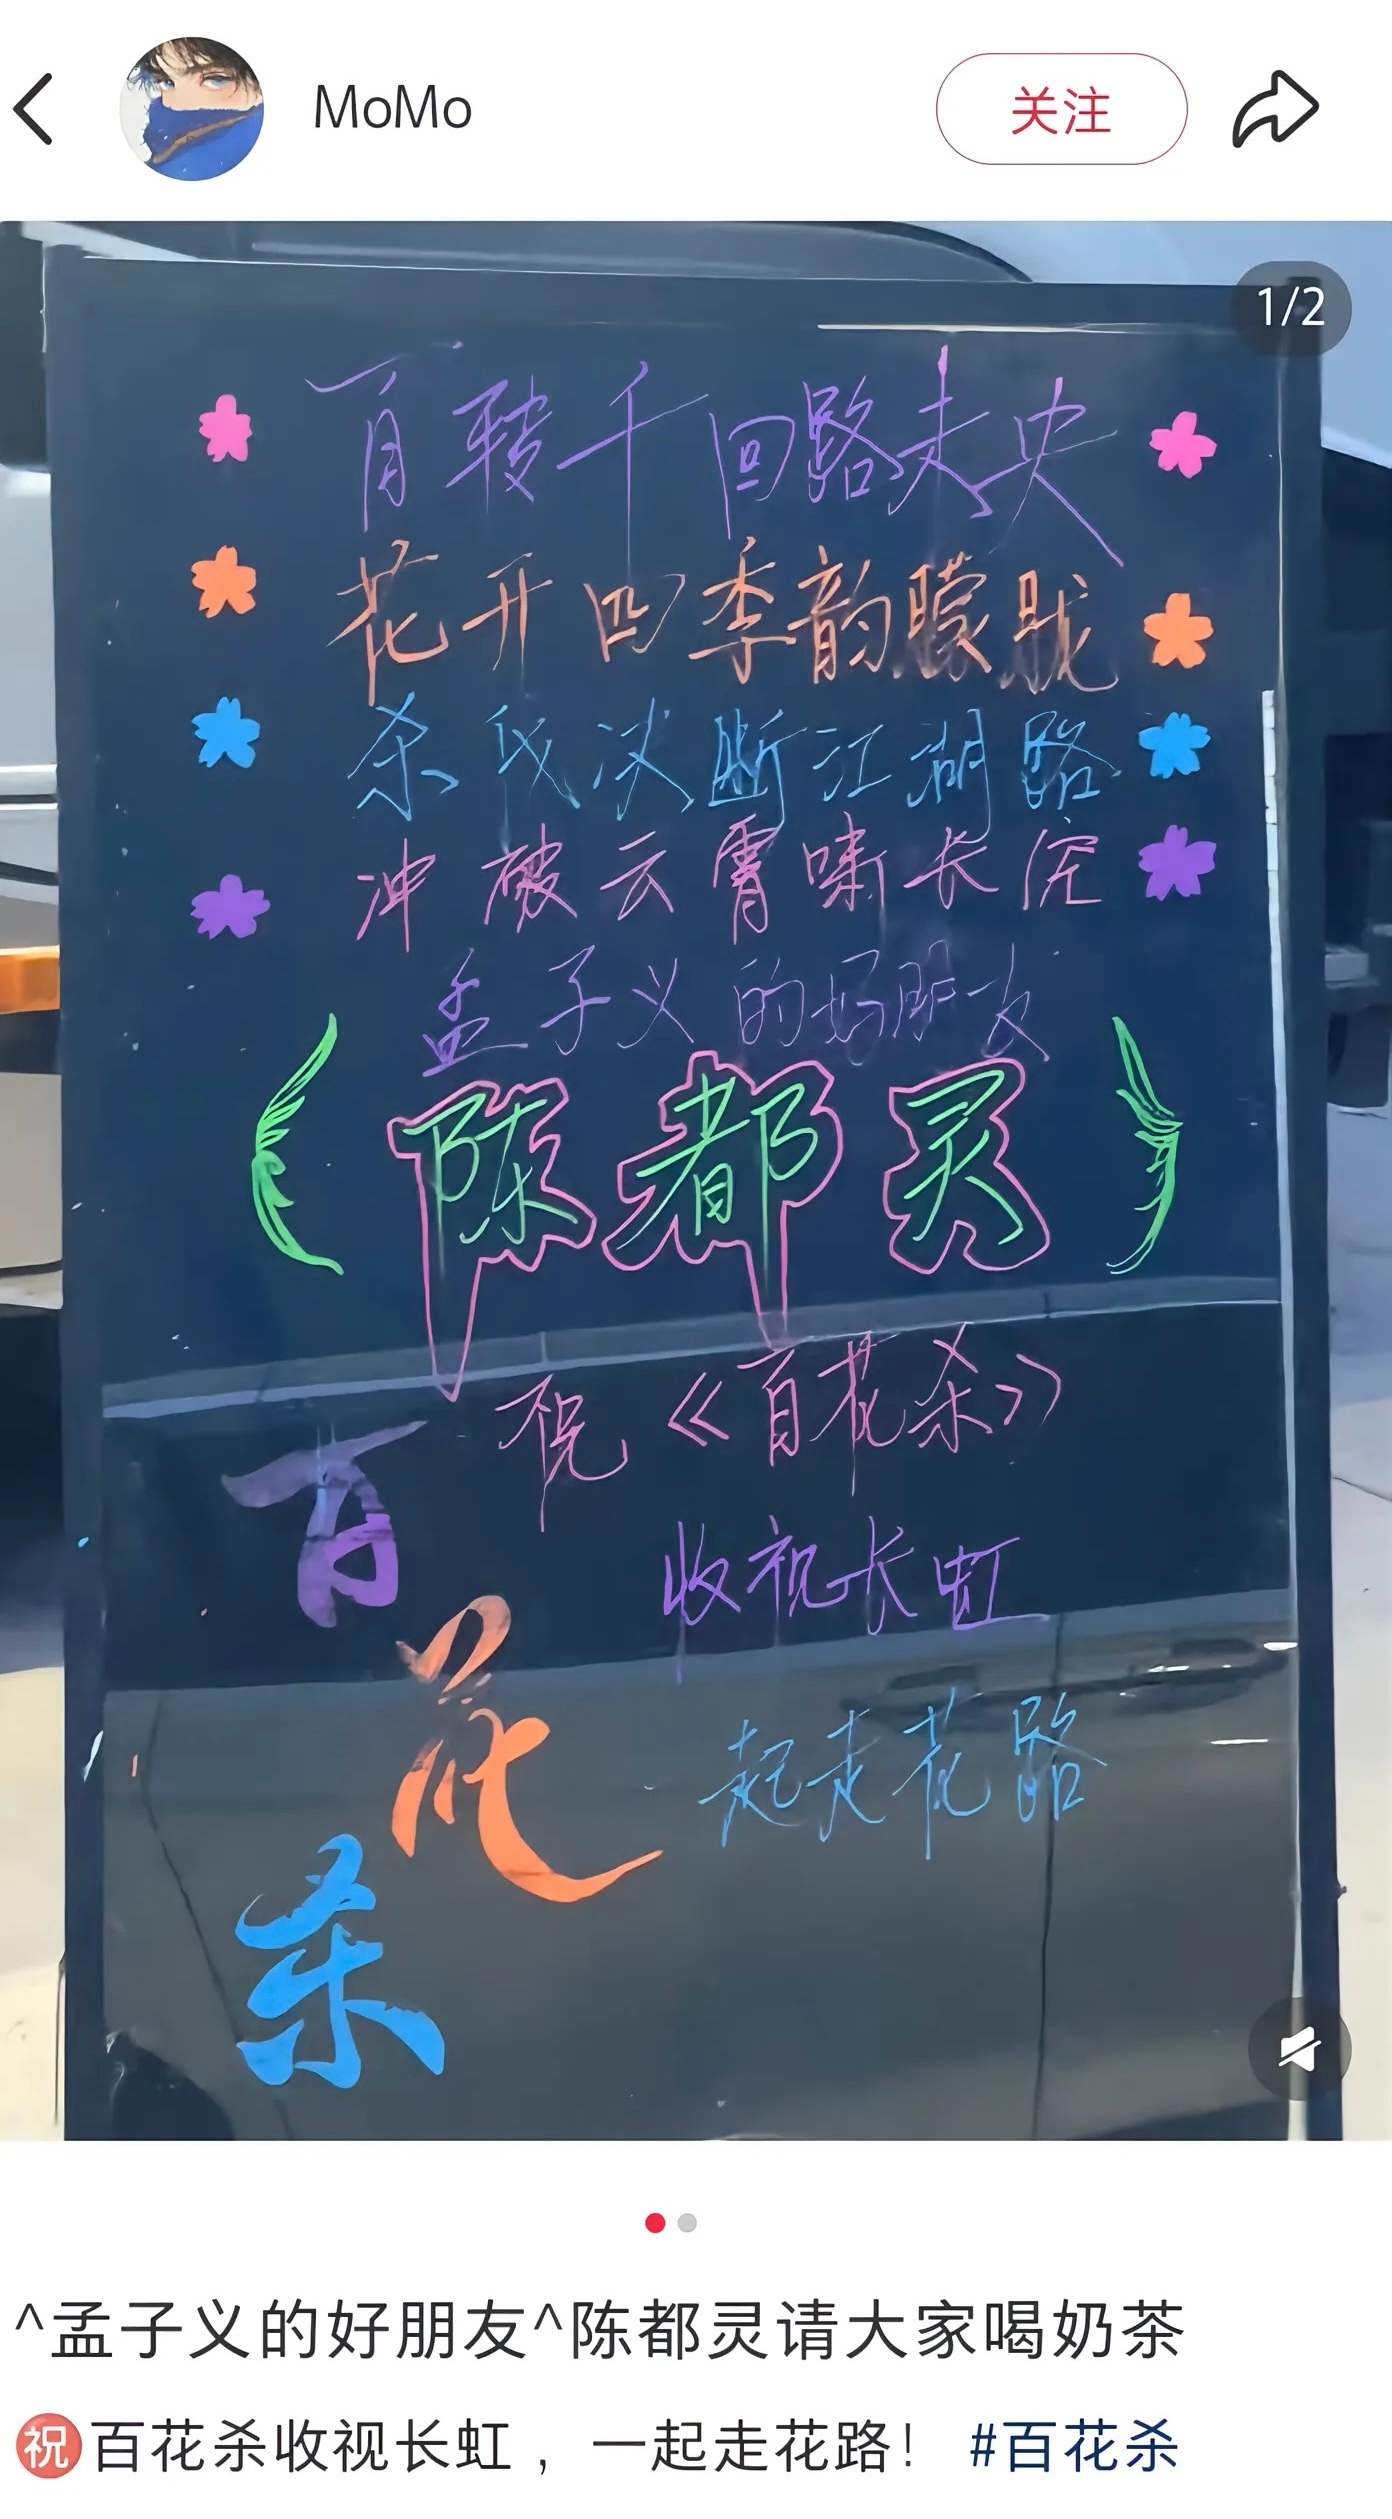 MoMo
关注
1/2
百转千回路走史
花开四季韵朦胧
杀伐决断江湖路
冲破云霄啸长
孟子义的好朋友
陈都灵
祝《百花杀》
收视长虹
一起走花路
百
花
杀
^孟子义的好朋友^陈都灵请大家喝奶茶
㊗百花杀收视长虹，一起走花路！ #百花杀